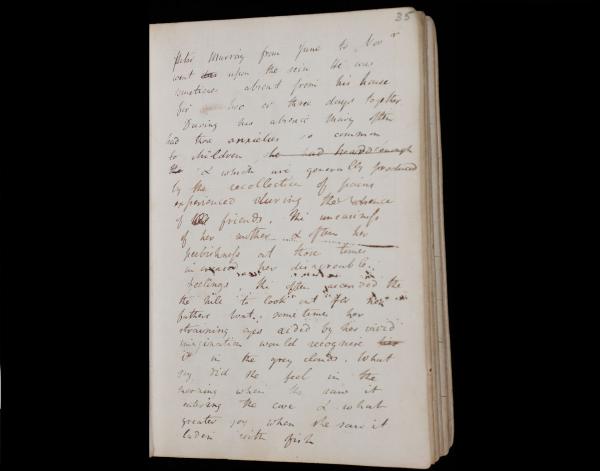 35
Peter Murray from June to Novr
went upon the sein He was
sometimes absent from his house
for two or three days together
During his absence Mary often
had those anxieties so common
to children she had heard enough
& which are generally produced
by the recollection of pains
experienced during the absence
of friends. The uneasiness
of her mother & often her
peevishness at those times
increased her disagreeable
feelings, she often ascended the
the hill to look out for her
fathers boat; sometimes her
straining eyes aided by her vivid
imagination would recognise her
it in the grey clouds. What
joy did she feel in the
morning when she saw it
entering the cove & what
greater joy when she saw it
laden with fish